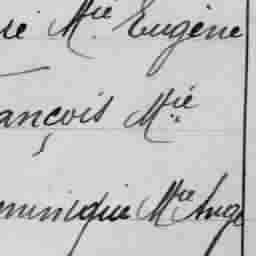 ré Mie Eugène
ançois Mie
ominique Mie Ange